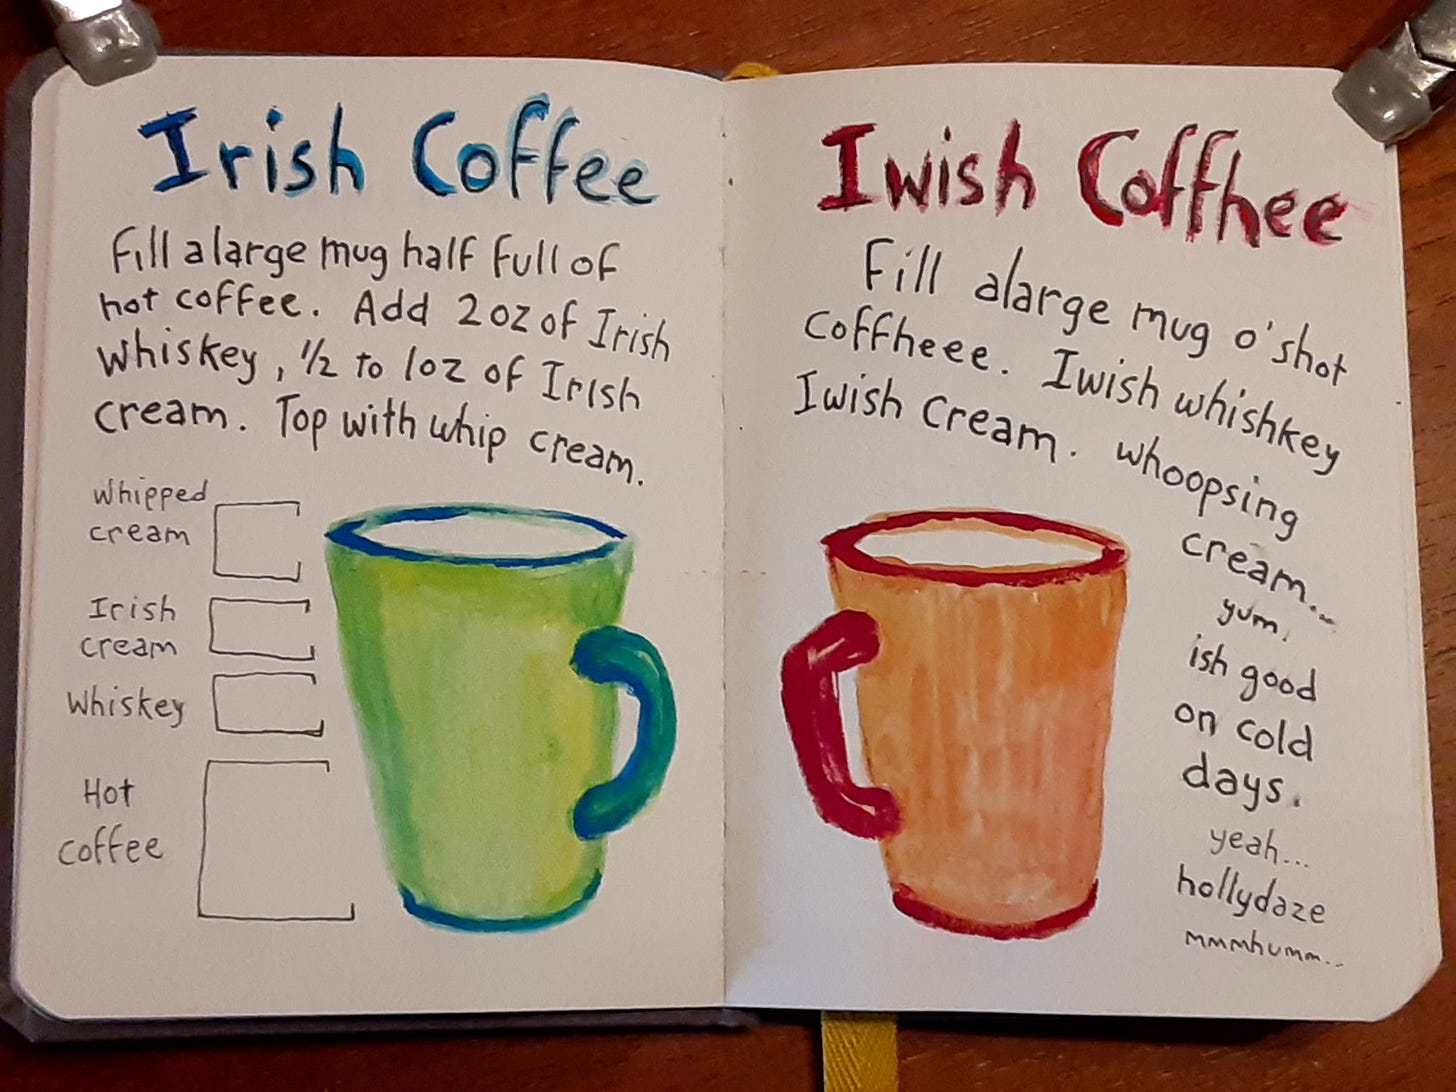 Irish Coffee
Fill a large mug half full of
hot coffee. Add 2oz of Irish
whiskey, 1/2 to 1oz of Irish
cream. Top with whip cream.
Whipped
cream
Irish
cream
Whiskey
Hot
coffee
Iwish Coffhee
Fill alarge mug o'shot
coffheee. Iwish whishkey
Iwish cream. whoopsing
cream...
yum,
ish good
on cold
days.
yeah...
hollydaze
mmmhumm...